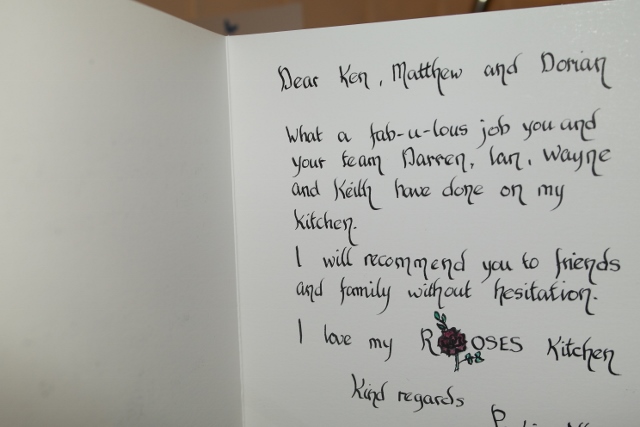 Dear Ken, Matthew and Dorian
What a fab-u-lous job you and
your team Darren, Ian, Wayne
and Keith have done on my
kitchen.
I will recommend you to friends
and family without hesitation.
I love my ROSES Kitchen
Kind regards